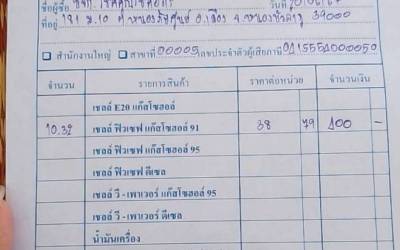 ชื่อผู้ซื้อ หจก. โชคคูณโชคอนันต์ วันที่
ที่อยู่ 181 ม.10 ต.หนองบัว อ.เมือง จ.หนองบัวลำภู 39000
สำนักงานใหญ่ สาขาที่ 00005 เลขประจำตัวผู้เสียภาษี
จำนวน รายการสินค้า ราคาต่อหน่วย จำนวนเงิน
เชลล์ E20 แก๊สโซฮอล์
10.32 เชลล์ ฟิวเซฟ แก๊สโซฮอล์ 91 38 79 400 –
เชลล์ ฟิวเซฟ แก๊สโซฮอล์ 95
เชลล์ ฟิวเซฟ ดีเซล
เชลล์ วี - เพาเวอร์ แก๊สโซฮอล์ 95
เชลล์ วี - เพาเวอร์ ดีเซล
น้ำมันเครื่อง